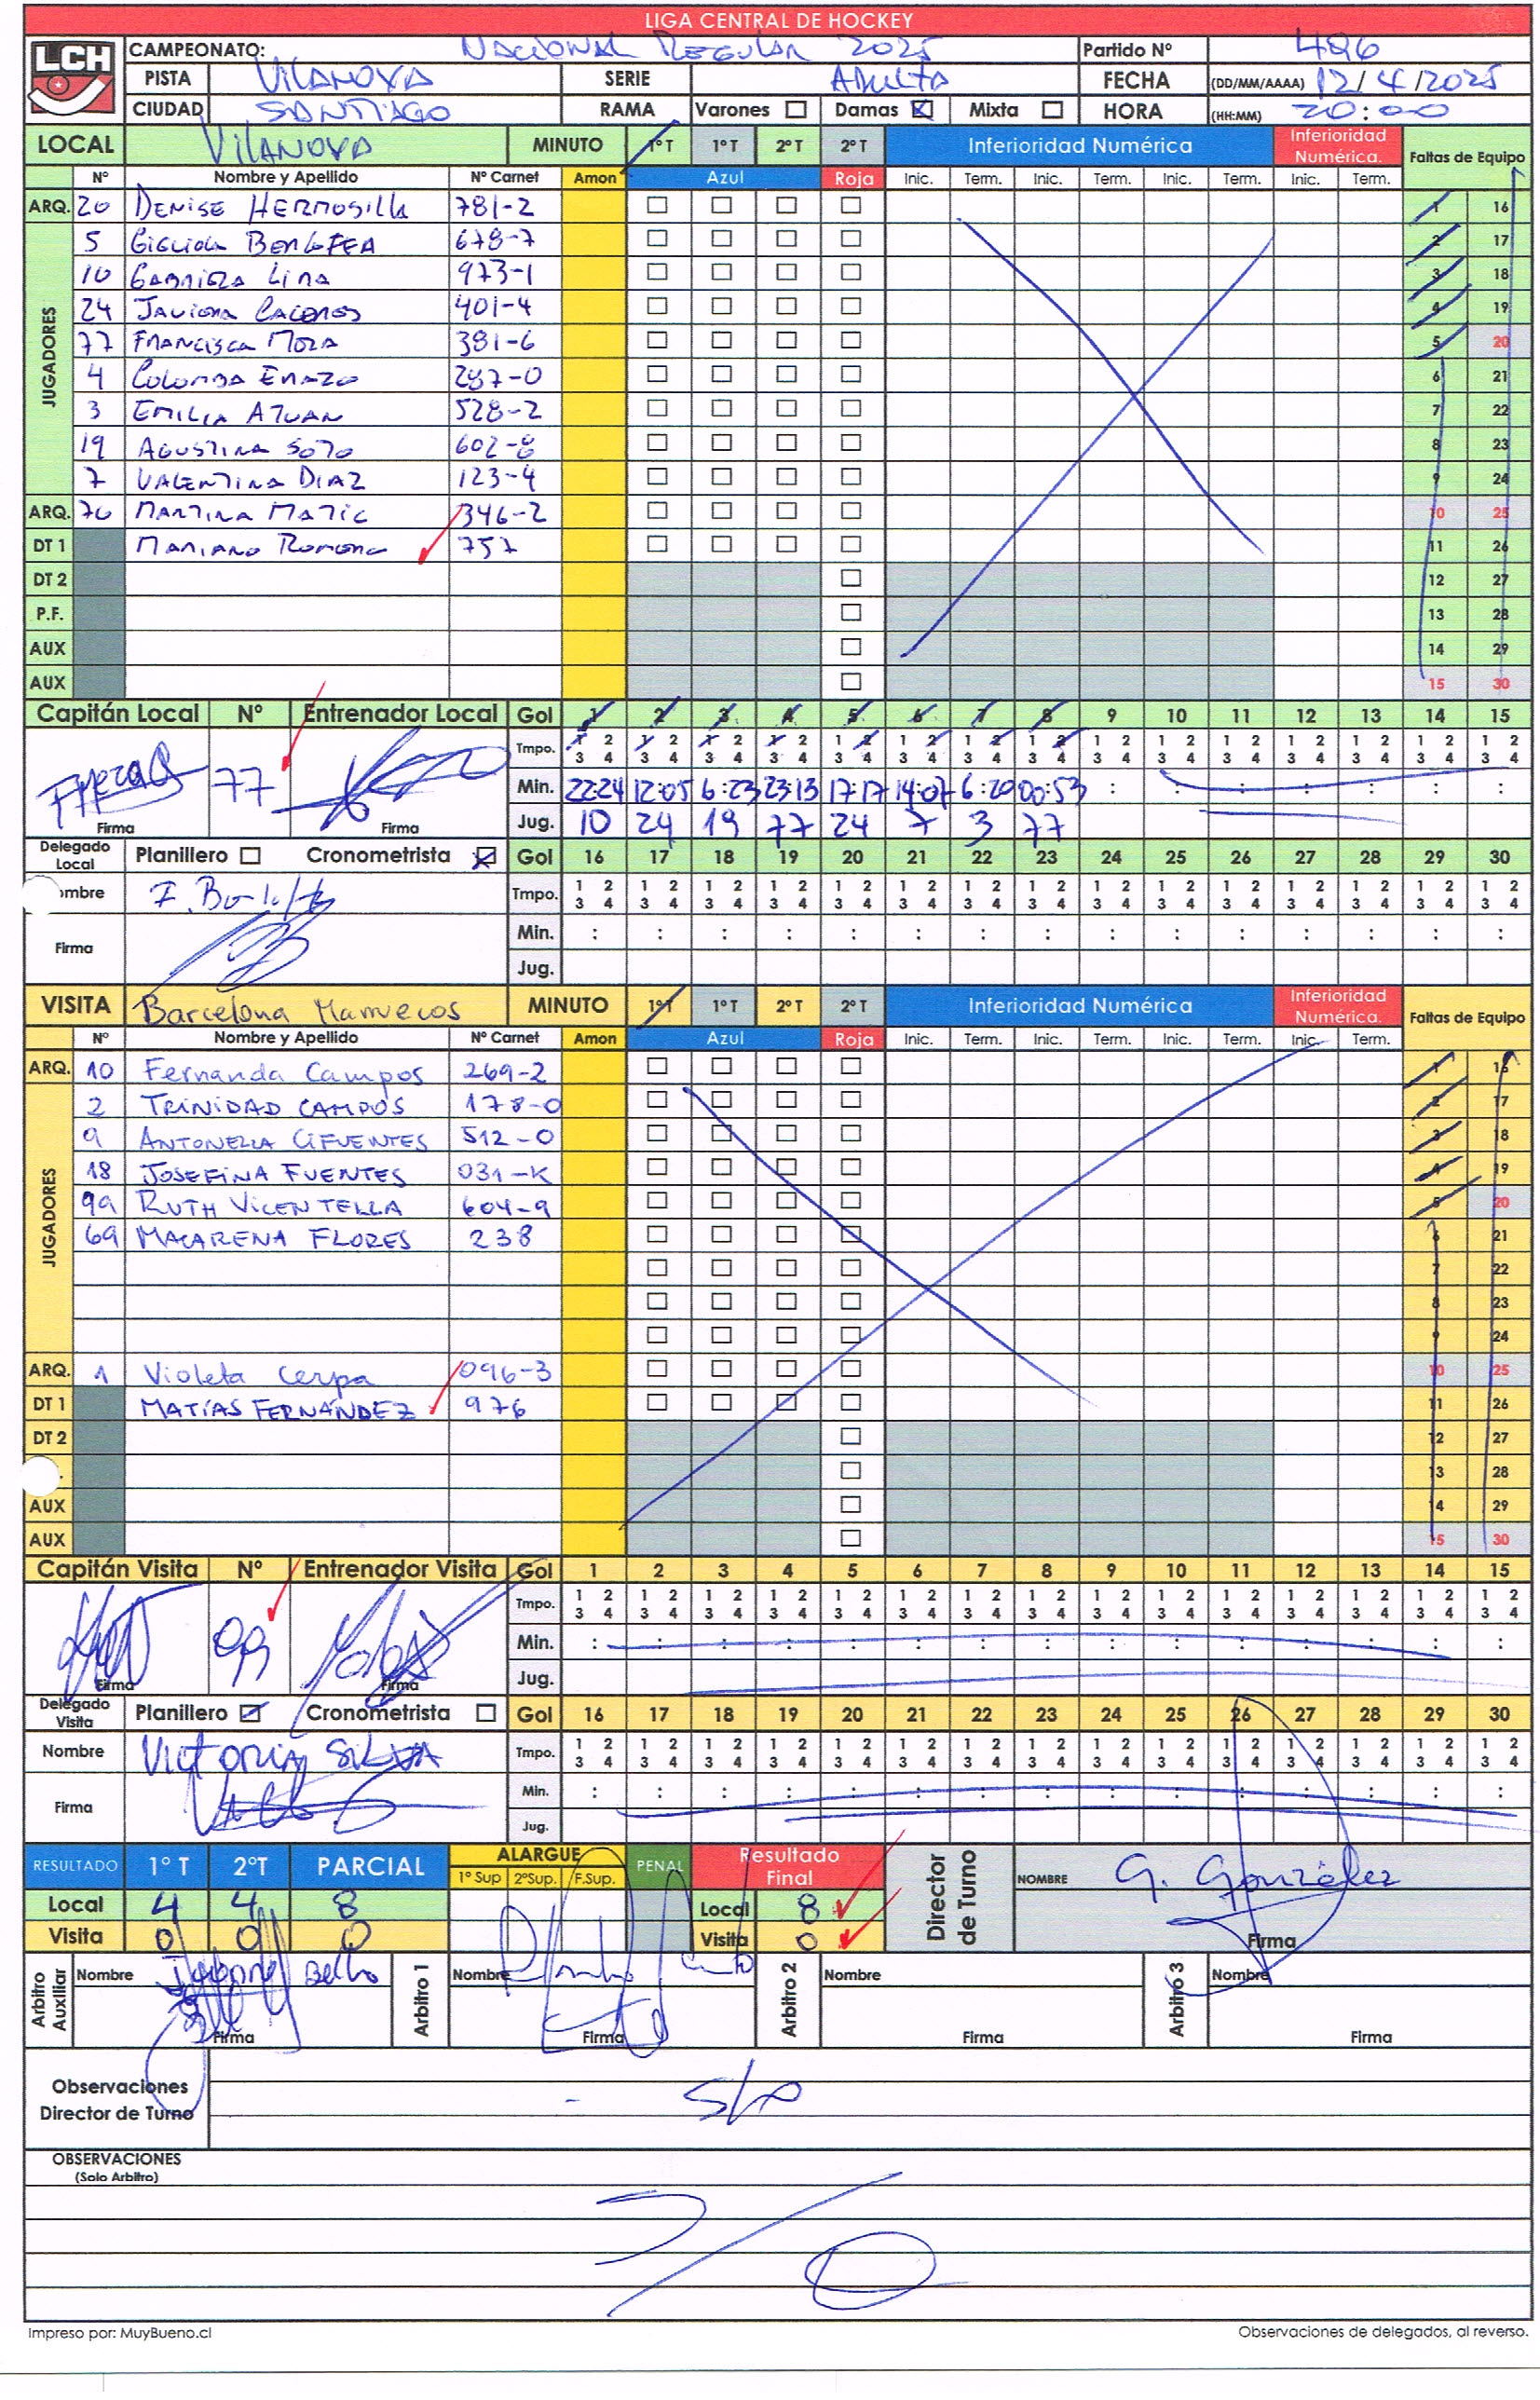 LIGA CENTRAL DE HOCKEY
LCH
CAMPEONATO: NACIONAL REGULAR 2025 Partido Nº 486
PISTA VILANOVA SERIE ADULTA FECHA (DD/MM/AAAA) 12/4/2025
CIUDAD SANTIAGO RAMA Varones Damas Mixta HORA (HH:MM) 20:00
LOCAL VILANOVA MINUTO 1º T 1º T 2º T 2º T Inferioridad Numérica Inferioridad Numérica. Faltas de Equipo
Nº Nombre y Apellido Nº Carnet Amon Azul Roja Inic. Term. Inic. Term. Inic. Term. Inic. Term.
ARQ. 20 DENISE HERMOSILLA 781-2 1 16
JUGADORES
5 678-7 2 17
10 GABRIELA LIRA 973-1 3 18
24 JAVIERA CACERES 401-4 4 19
77 FRANCISCA MORA 381-6 5 20
4 COLOMBA ERAZO 287-0 6 21
3 EMILIA ATUAN 528-2 7 22
19 AGUSTINA SOTO 602-8 8 23
7 VALENTINA DIAZ 123-4 9 24
ARQ. 70 MARTINA MATIC 346-2 10 25
DT 1 MARIANO ROMERO 757 11 26
DT 2 12 27
P.F. 13 28
AUX 14 29
AUX 15 30
Capitán Local Nº Entrenador Local Gol 1 2 3 4 5 6 7 8 9 10 11 12 13 14 15
Tmpo. 1 2 1 2 1 2 1 2 1 2 1 2 1 2 1 2 1 2 1 2 1 2 1 2 1 2 1 2 1 2
3 4 3 4 3 4 3 4 3 4 3 4 3 4 3 4 3 4 3 4 3 4 3 4 3 4 3 4 3 4
77 Min. 22:24 12:05 6:23 23:13 17:17 14:07 6:20 00:53 : : : : : : :
Firma Firma Jug. 10 24 19 77 24 7 3 77
Delegado Local Planillero Cronometrista Gol 16 17 18 19 20 21 22 23 24 25 26 27 28 29 30
ombre Tmpo. 1 2 1 2 1 2 1 2 1 2 1 2 1 2 1 2 1 2 1 2 1 2 1 2 1 2 1 2 1 2
3 4 3 4 3 4 3 4 3 4 3 4 3 4 3 4 3 4 3 4 3 4 3 4 3 4 3 4 3 4
Firma Min. : : : : : : : : : : : : : : :
Jug.
VISITA Barcelona Marruecos MINUTO 1º T 1º T 2º T 2º T Inferioridad Numérica Inferioridad Numérica. Faltas de Equipo
Nº Nombre y Apellido Nº Carnet Amon Azul Roja Inic. Term. Inic. Term. Inic. Term. Inic. Term.
ARQ. 10 Fernanda Campos 269-2 1 16
JUGADORES
2 TRINIDAD CAMPOS 178-0 2 17
9 ANTONELLA CIFUENTES 512-0 3 18
18 JOSEFINA FUENTES 031-K 4 19
99 RUTH VICENTELLA 604-9 5 20
69 MACARENA FLORES 238 6 21
7 22
8 23
9 24
ARQ. 1 Violeta Cerpa 096-3 10 25
DT 1 MATÍAS FERNÁNDEZ 976 11 26
DT 2 12 27
13 28
AUX 14 29
AUX 15 30
Capitán Visita Nº Entrenador Visita Gol 1 2 3 4 5 6 7 8 9 10 11 12 13 14 15
Tmpo. 1 2 1 2 1 2 1 2 1 2 1 2 1 2 1 2 1 2 1 2 1 2 1 2 1 2 1 2 1 2
3 4 3 4 3 4 3 4 3 4 3 4 3 4 3 4 3 4 3 4 3 4 3 4 3 4 3 4 3 4
99 Min. : : : : : : : : : : : : : : :
Firma Firma Jug.
Delegado Visita Planillero Cronometrista Gol 16 17 18 19 20 21 22 23 24 25 26 27 28 29 30
Nombre VICTORIA SILVA Tmpo. 1 2 1 2 1 2 1 2 1 2 1 2 1 2 1 2 1 2 1 2 1 2 1 2 1 2 1 2 1 2
3 4 3 4 3 4 3 4 3 4 3 4 3 4 3 4 3 4 3 4 3 4 3 4 3 4 3 4 3 4
Firma Min. : : : : : : : : : : : : : : :
Jug.
RESULTADO 1º T 2ºT PARCIAL ALARGUE 1º Sup 2ºSup. F.Sup. PENAL Resultado Final Director de Turno NOMBRE G. González
Local 4 4 8 Local 8
Visita 0 0 0 Visita 0 Firma
Arbitro Auxiliar Nombre Bello Arbitro 1 Nombre Arbitro 2 Nombre Arbitro 3 Nombre
Firma Firma Firma Firma
Observaciones Director de Turno - S/O
OBSERVACIONES
(Solo Arbitro)
Impreso por: MuyBueno.cl Observaciones de delegados, al reverso.